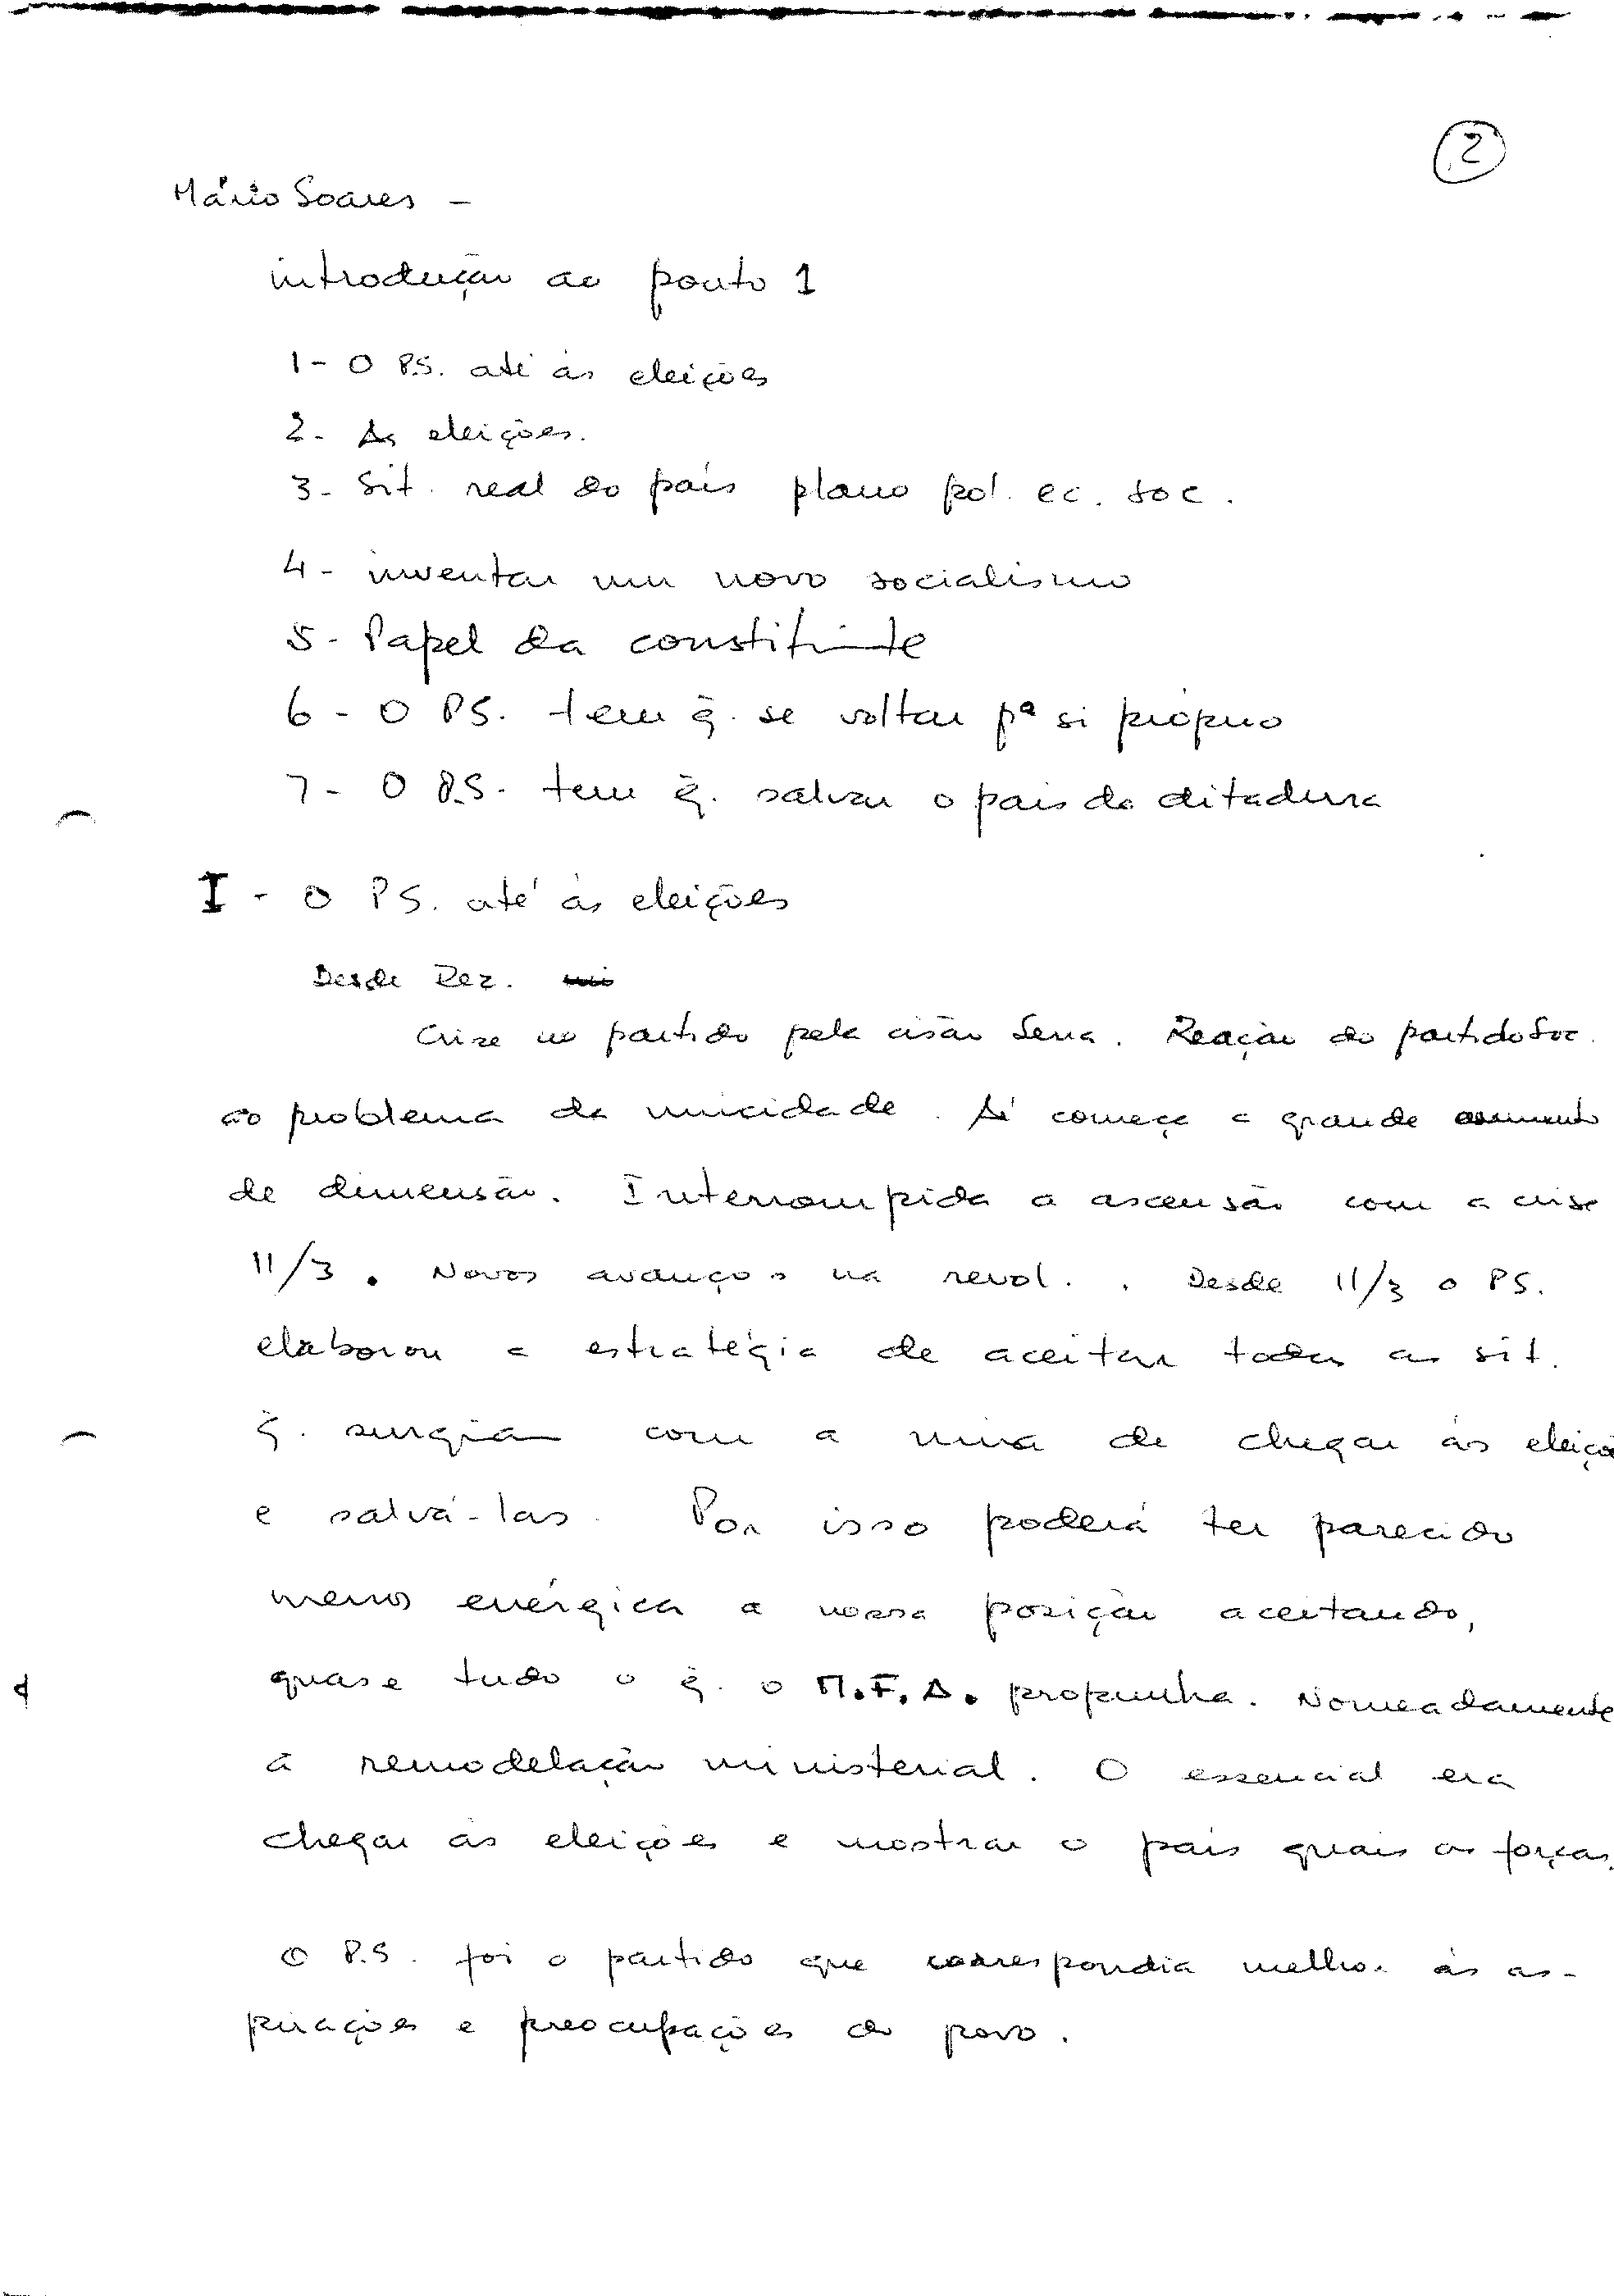 2
Mário Soares -
introdução ao ponto 1
1 - O P.S. até às eleições
2 - As eleições.
3 - Sit. real do país plano pol. ec. soc.
4 - inventar um novo socialismo
5 - Papel da constituinte
6 - O P.S. tem q̃. se voltar pª si próprio
7 - O P.S. tem q̃. salvar o país da ditadura
I - O P.S. até às eleições
Desde Dez.
Crise no partido pela cisão Serra. Reação do partido Soc.
ao problema da unicidade. Aí começa a grande aumento
de dimensão. Interrompida a ascensão com a crise
11/3. Novos avanços na revol.. Desde 11/3 o P.S.
elaborou a estratégia de aceitar todas as sit.
q̃. surgiam com a mira de chegar às eleiçõ
e salvá-las. Por isso poderá ter parecido
menos enérgica a nossa posição aceitando,
quase tudo o q̃. o M.F.A. propunha. Nomeadamente
a remodelação ministerial. O essencial era
chegar às eleições e mostrar o país quais as forças.
O P.S. foi o partido que correspondia melhor às as-
pirações e preocupações do povo.